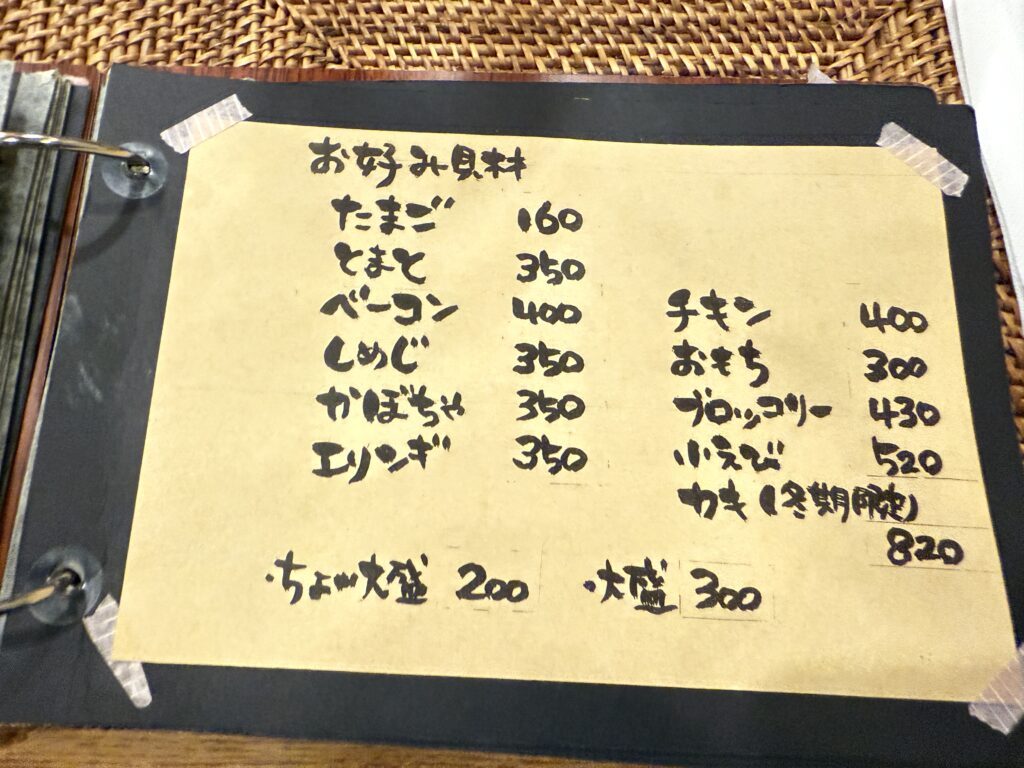 お好み具材
たまご 160
とまと 350
ベーコン 400
しめじ 350
かぼちゃ 350
エリンギ 350
チキン 400
おもち 300
ブロッコリー 430
小えび 520
カキ(冬期限定)
820
・ちょい大盛 200 ・大盛 300